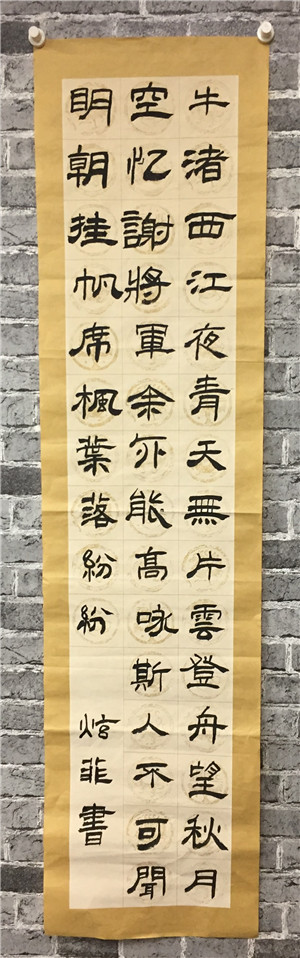 牛渚西江夜青天無片雲登舟望秋月
空忆謝將軍余亦能高咏斯人不可聞
明朝挂帆席楓葉落紛紛
炫非書